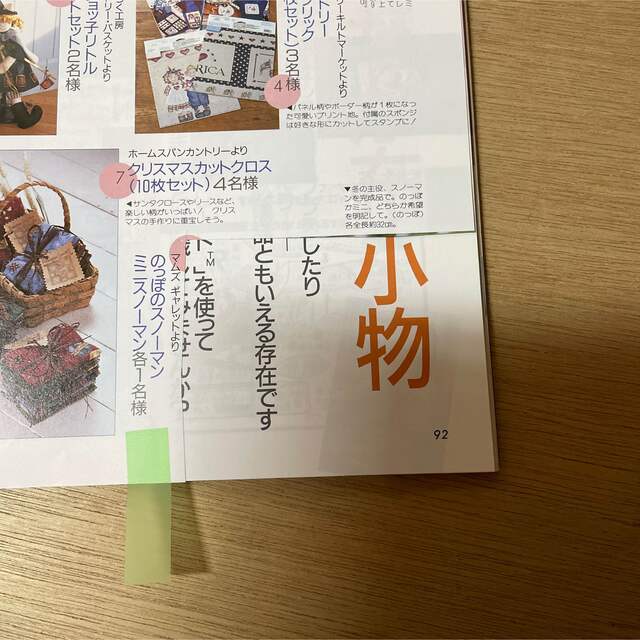 リー・キルトマーケットより
3名様
4
◀パネル柄やボーダー柄が1枚になっ
た可愛いプリント地。付属のスポンジ
は好きな形にカットしてスタンプに!
RICA
工房
リー・バスケットより
ョッ子リトル
トセット2名様
ホームスパンカントリーより
7
クリスマスカットクロス
(10枚セット)4名様
◀サンタクロースやリースなど、
楽しい柄がいっぱい! クリス
マスの手作りに重宝しそう。
▼冬の主役、スノーマ
ンを完成品で。のっぽ
かミニ、どちらか希望
を明記して。(のっぽ)
各全長約32cm。
マムズ キャレットより
のっぽのスノーマン
ミニスノーマン各1名様
小物
したり
ともいえる存在です
™
」を使って
92